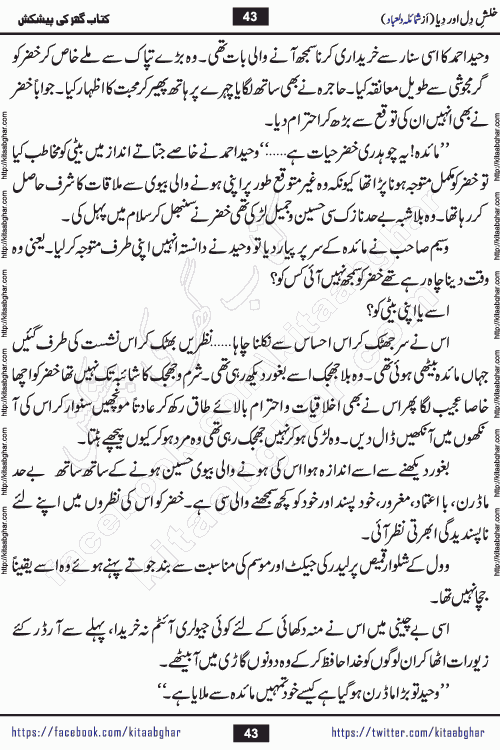 خلشِ دِل اور دِیا (از شمائلہ دلعباد)
43
کتاب گھر کی پیشکش
وحید احمد کا اسی سنار سے خریداری کرنا سمجھ آنے والی بات تھی۔ وہ بڑے تپاک سے ملے خاص کر خضر کو
گرمجوشی سے طویل معانقہ کیا۔ حاجرہ نے بھی ساتھ لگایا چہرے پر ہاتھ پھیر کر محبت کا اظہار کیا۔ جواباً خضر
نے بھی انہیں ان کی توقع سے بڑھ کر احترام دیا۔
’’مائدہ! یہ چوہدری خضر حیات ہے......‘‘ وحید احمد نے خاصے جتاتے انداز میں بیٹی کو مخاطب کیا
تو خضر کو مکمل متوجہ ہونا پڑا تھا کیونکہ وہ غیر متوقع طور پر اپنی ہونے والی بیوی سے ملاقات کا شرف حاصل
کر رہا تھا۔ وہ بلاشبہ بے حد نازک سی حسین و جمیل لڑکی تھی خضر نے سنبھل کر سلام میں پہل کی۔
وسیم صاحب نے مائدہ کے سر پر پیار دیا تو وحید نے دانستہ انہیں اپنی طرف متوجہ کر لیا۔ یعنی وہ
وقت دینا چاہ رہے تھے خضر کو سمجھ نہیں آئی کس کو؟
اسے یا اپنی بیٹی کو؟
اس نے سر جھٹک کر اس احساس سے نکلنا چاہا...... نظریں بھٹک کر اس نشست کی طرف گئیں
جہاں مائدہ بیٹھی ہوئی تھی۔ وہ بلا جھجک اسے بغور دیکھ رہی تھی۔ شرم و جھجک کا شائبہ تک نہیں تھا خضر کو اچھا
خاصا عجیب لگا پھر اس نے بھی اخلاقیات و احترام بالائے طاق رکھ کر عادتاً مونچھیں سنوار کر اس کی آ
نکھوں میں آنکھیں ڈال دیں۔ وہ لڑکی ہو کر نہیں جھجک رہی تھی وہ مرد ہو کر کیوں پیچھے ہٹتا۔
بغور دیکھنے سے اسے اندازہ ہوا اس کی ہونے والی بیوی حسین ہونے کے ساتھ ساتھ بے حد
ماڈرن، با اعتماد، مغرور، خود پسند اور خود کو کچھ سمجھنے والی سی ہے۔ خضر کو اس کی نظروں میں اپنے لئے
ناپسندیدگی ابھرتی نظر آئی۔
وول کے شلوار قمیض پر لیدر کی جیکٹ اور موسم کی مناسبت سے بند جوتے پہنے ہوئے وہ اسے یقیناً
جچا نہیں تھا۔
اسی بے چینی میں اس نے منہ دکھائی کے لئے کوئی جیولری آئٹم نہ خریدا، پہلے سے آرڈر کئے
زیورات اٹھا کر ان لوگوں کو خدا حافظ کر کے وہ دونوں گاڑی میں آ بیٹھے۔
’’وحید تو بڑا ماڈرن ہو گیا ہے کیسے خود تمہیں مائدہ سے ملایا ہے۔‘‘
http://kitaabghar.com http://kitaabghar.com http://kitaabghar.com http://kitaabghar.com http://kitaabghar.com
http://kitaabghar.com http://kitaabghar.com http://kitaabghar.com http://kitaabghar.com http://kitaabghar.com
کتاب گھر کی پیشکش
kitaabghar.com
facebook.com/kitaabghar
https://facebook.com/kitaabghar
43
https://twitter.com/kitaabghar